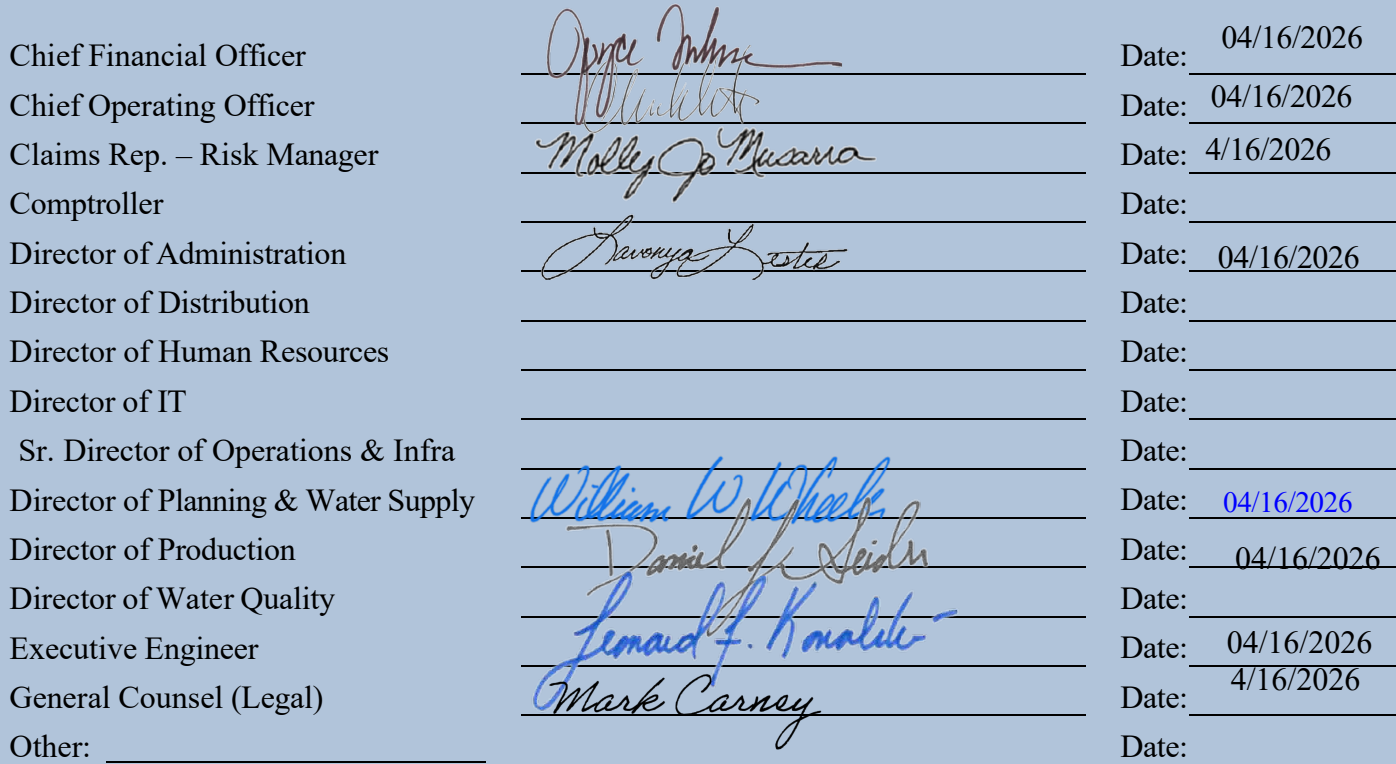 Chief Financial Officer Joyce Date: 04/16/2026
Chief Operating Officer Date: 04/16/2026
Claims Rep. – Risk Manager Molly Jo Musarra Date: 4/16/2026
Comptroller Date:
Director of Administration Lavonya Lester Date: 04/16/2026
Director of Distribution Date:
Director of Human Resources Date:
Director of IT Date:
Sr. Director of Operations & Infra Date:
Director of Planning & Water Supply William W Wheeler Date: 04/16/2026
Director of Production Daniel J. Seidu Date: 04/16/2026
Director of Water Quality Date:
Executive Engineer Leonard F. Date: 04/16/2026
General Counsel (Legal) Mark Carney Date: 4/16/2026
Other: Date: